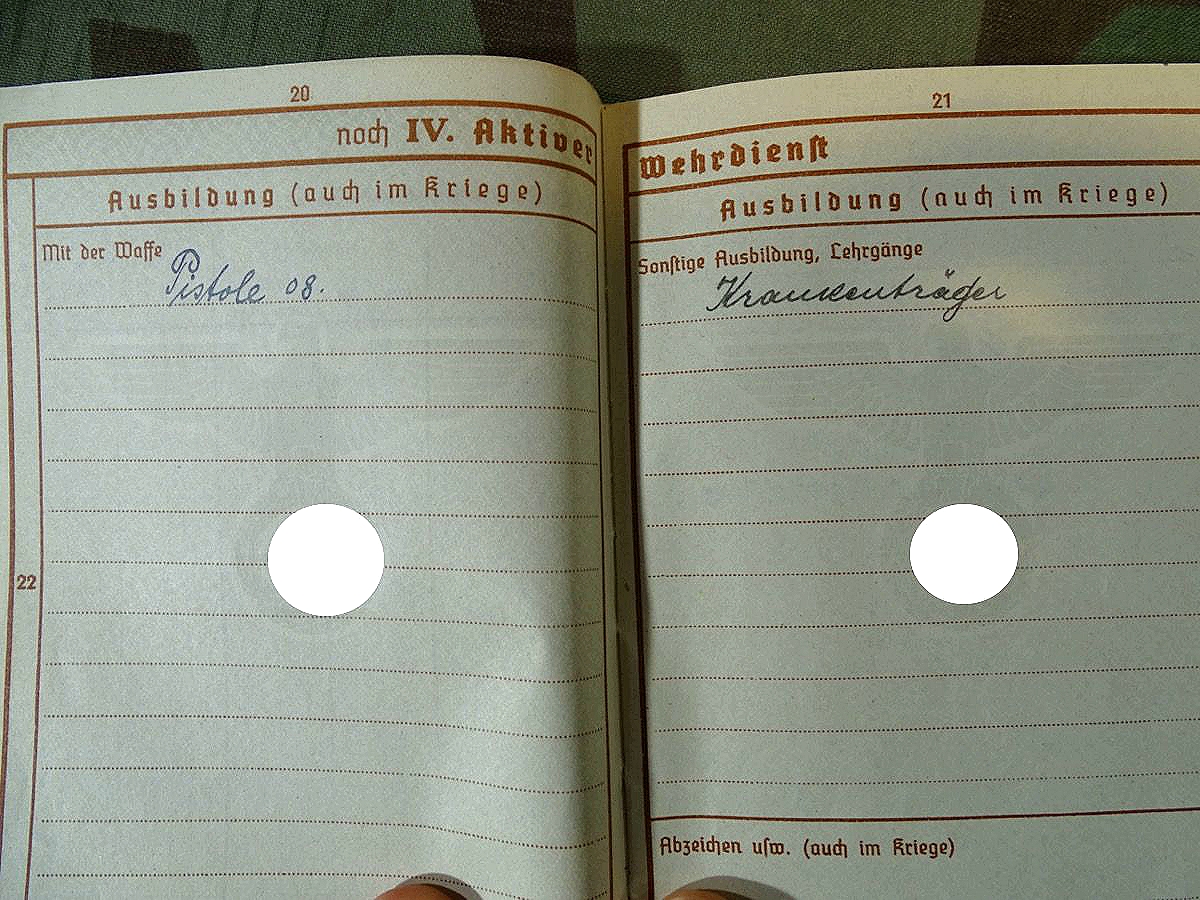 20
noch IV. Aktiver
Ausbildung (auch im Kriege)
Mit der Waffe
Pistole 08.
22
21
Wehrdienst
Ausbildung (auch im Kriege)
Sonstige Ausbildung, Lehrgänge
Krankenträger
Abzeichen usw. (auch im Kriege)